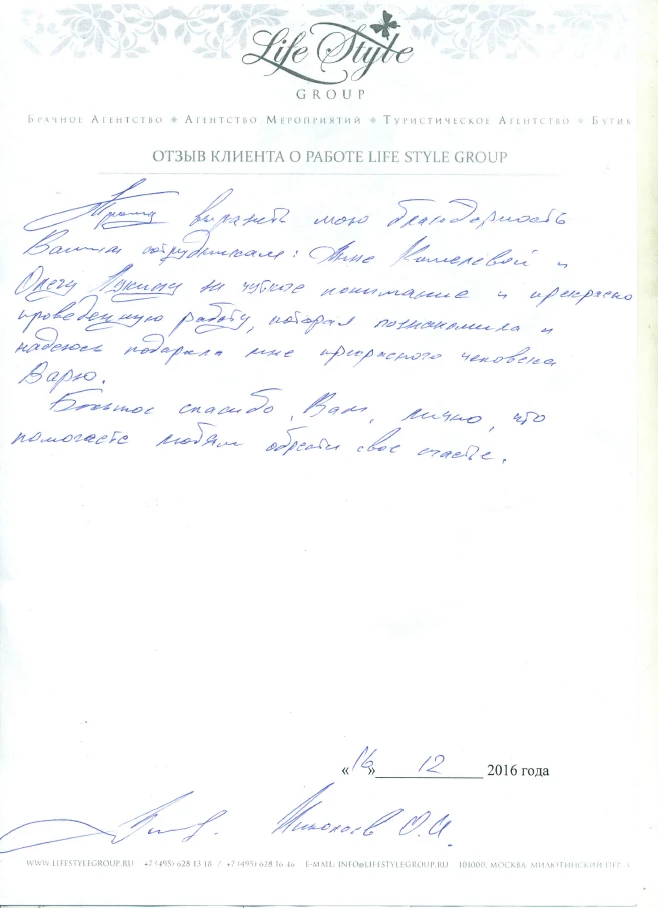 Life Style
GROUP
БРАЧНОЕ АГЕНТСТВО ◆ АГЕНТСТВО МЕРОПРИЯТИЙ ◆ ТУРИСТИЧЕСКОЕ АГЕНТСТВО ◆ БУТИК
ОТЗЫВ КЛИЕНТА О РАБОТЕ LIFE STYLE GROUP
Прошу выразить мою благодарность
Вашим сотрудникам: Анне и
Олегу за чуткое понимание и прекрасно
проведенную работу, которая познакомила и
надеюсь подарила мне прекрасного человека
Варю.
Большое спасибо, Вам, лично, что
помогаете людям обрести свое счастье.
«16» 12 2016 года
Николаев О.И.
WWW.LIFESTYLEGROUP.RU +7 (495) 628 13 18 / +7 (495) 628 16 46 E-MAIL: INFO@LIFESTYLEGROUP.RU 101000, МОСКВА, МИЛЮТИНСКИЙ ПЕР